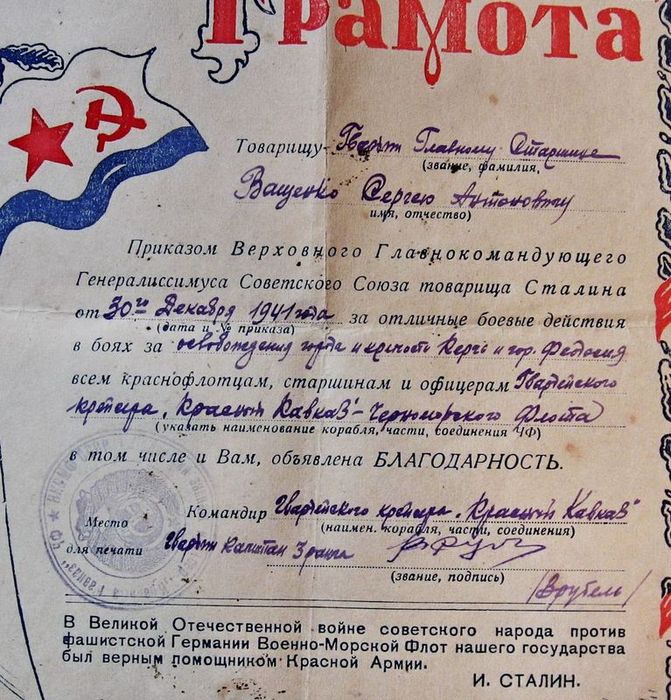 Грамота
Товарищу Гвардии Главному Старшине
(звание, фамилия,
Ващенко Сергею Антоновичу
имя, отчество)
Приказом Верховного Главнокомандующего
Генералиссимуса Советского Союза товарища Сталина
от 30го Декабря 1941 года за отличные боевые действия
(дата и № приказа)
в боях за освобождения города и крепости Керчь и гор. Феодосия
всем краснофлотцам, старшинам и офицерам Гвардейского
крейсера „Красный Кавказ" - Черноморского Флота
(указать наименование корабля, части, соединения ЧФ)
в том числе и Вам, объявлена БЛАГОДАРНОСТЬ.
Командир Гвардейского крейсера „Красный Кавказ"
(наимен. корабля, части, соединения)
Место
для печати
Гвардии Капитан 3 ранга
(звание, подпись)
/Врубель/
В Великой Отечественной войне советского народа против
фашистской Германии Военно-Морской Флот нашего государства
был верным помощником Красной Армии.
И. СТАЛИН.